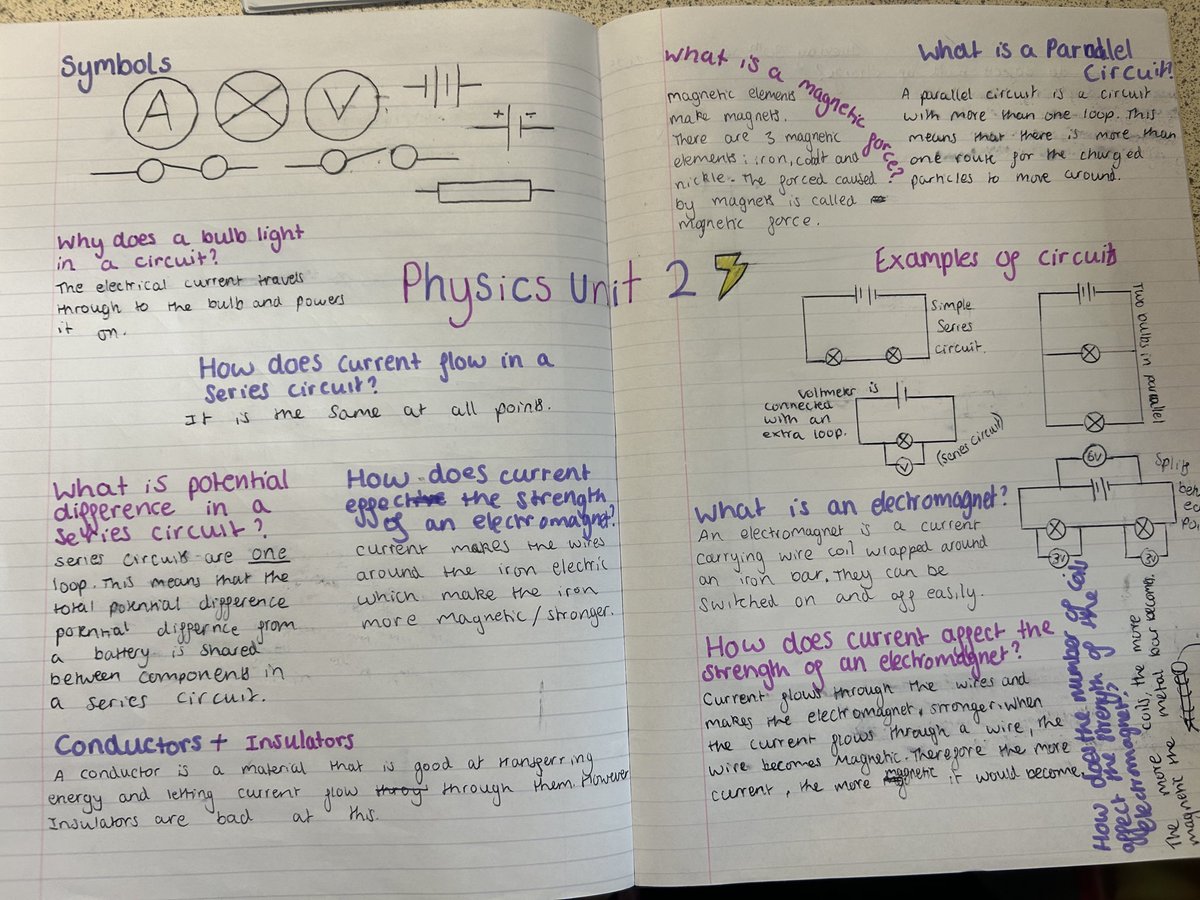 Symbols
A
V
+ -
Why does a bulb light
in a circuit?
The electrical current travels
through to the bulb and powers
it on.
Physics Unit 2
How does current flow in a
Series circuit?
It is the same at all points.
What is potential
difference in a
series circuit?
series circuits are one
loop. This means that the
total potential difference
potential differnce from
a battery is shared
between components in
a series circuit.
How does current
effect the strength
of an electromagnet?
current makes the wires
around the iron electric
which make the iron
more magnetic/stronger.
Conductors + Insulators
A conductor is a material that is good at transferring
energy and letting current flow through them. However
Insulators are bad at this.
What is a magnetic force?
magnetic elements
make magnets.
There are 3 magnetic
elements: iron, and
nickle. The forced caused
by magnets is called
magnetic force.
What is a Parallel
Circuit?
A parallel circuit is a circuit
with more than one loop. This
means that there is more than
one route for the charged
particles to move around.
Examples of circuits
Simple
Series
circuit.
Two bulbs in parallel
Voltmeter is
connected
with an
extra loop.
(series circuit)
V
6V
3V
3V
Splits
What is an electromagnet?
An electromagnet is a current
carrying wire coil wrapped around
an iron bar. They can be
switched on and off easily.
How does current affect the
strength of an electromagnet?
Current flows through the wires and
makes the electromagnet, stronger. When
the current flows through a wire, the
wire becomes magnetic. Therefore the more
current, the more magnetic it would become.
How does the number of coils
affect the strength of the
electromagnet?
The more coils, the more
magnetic the metal bar becomes.